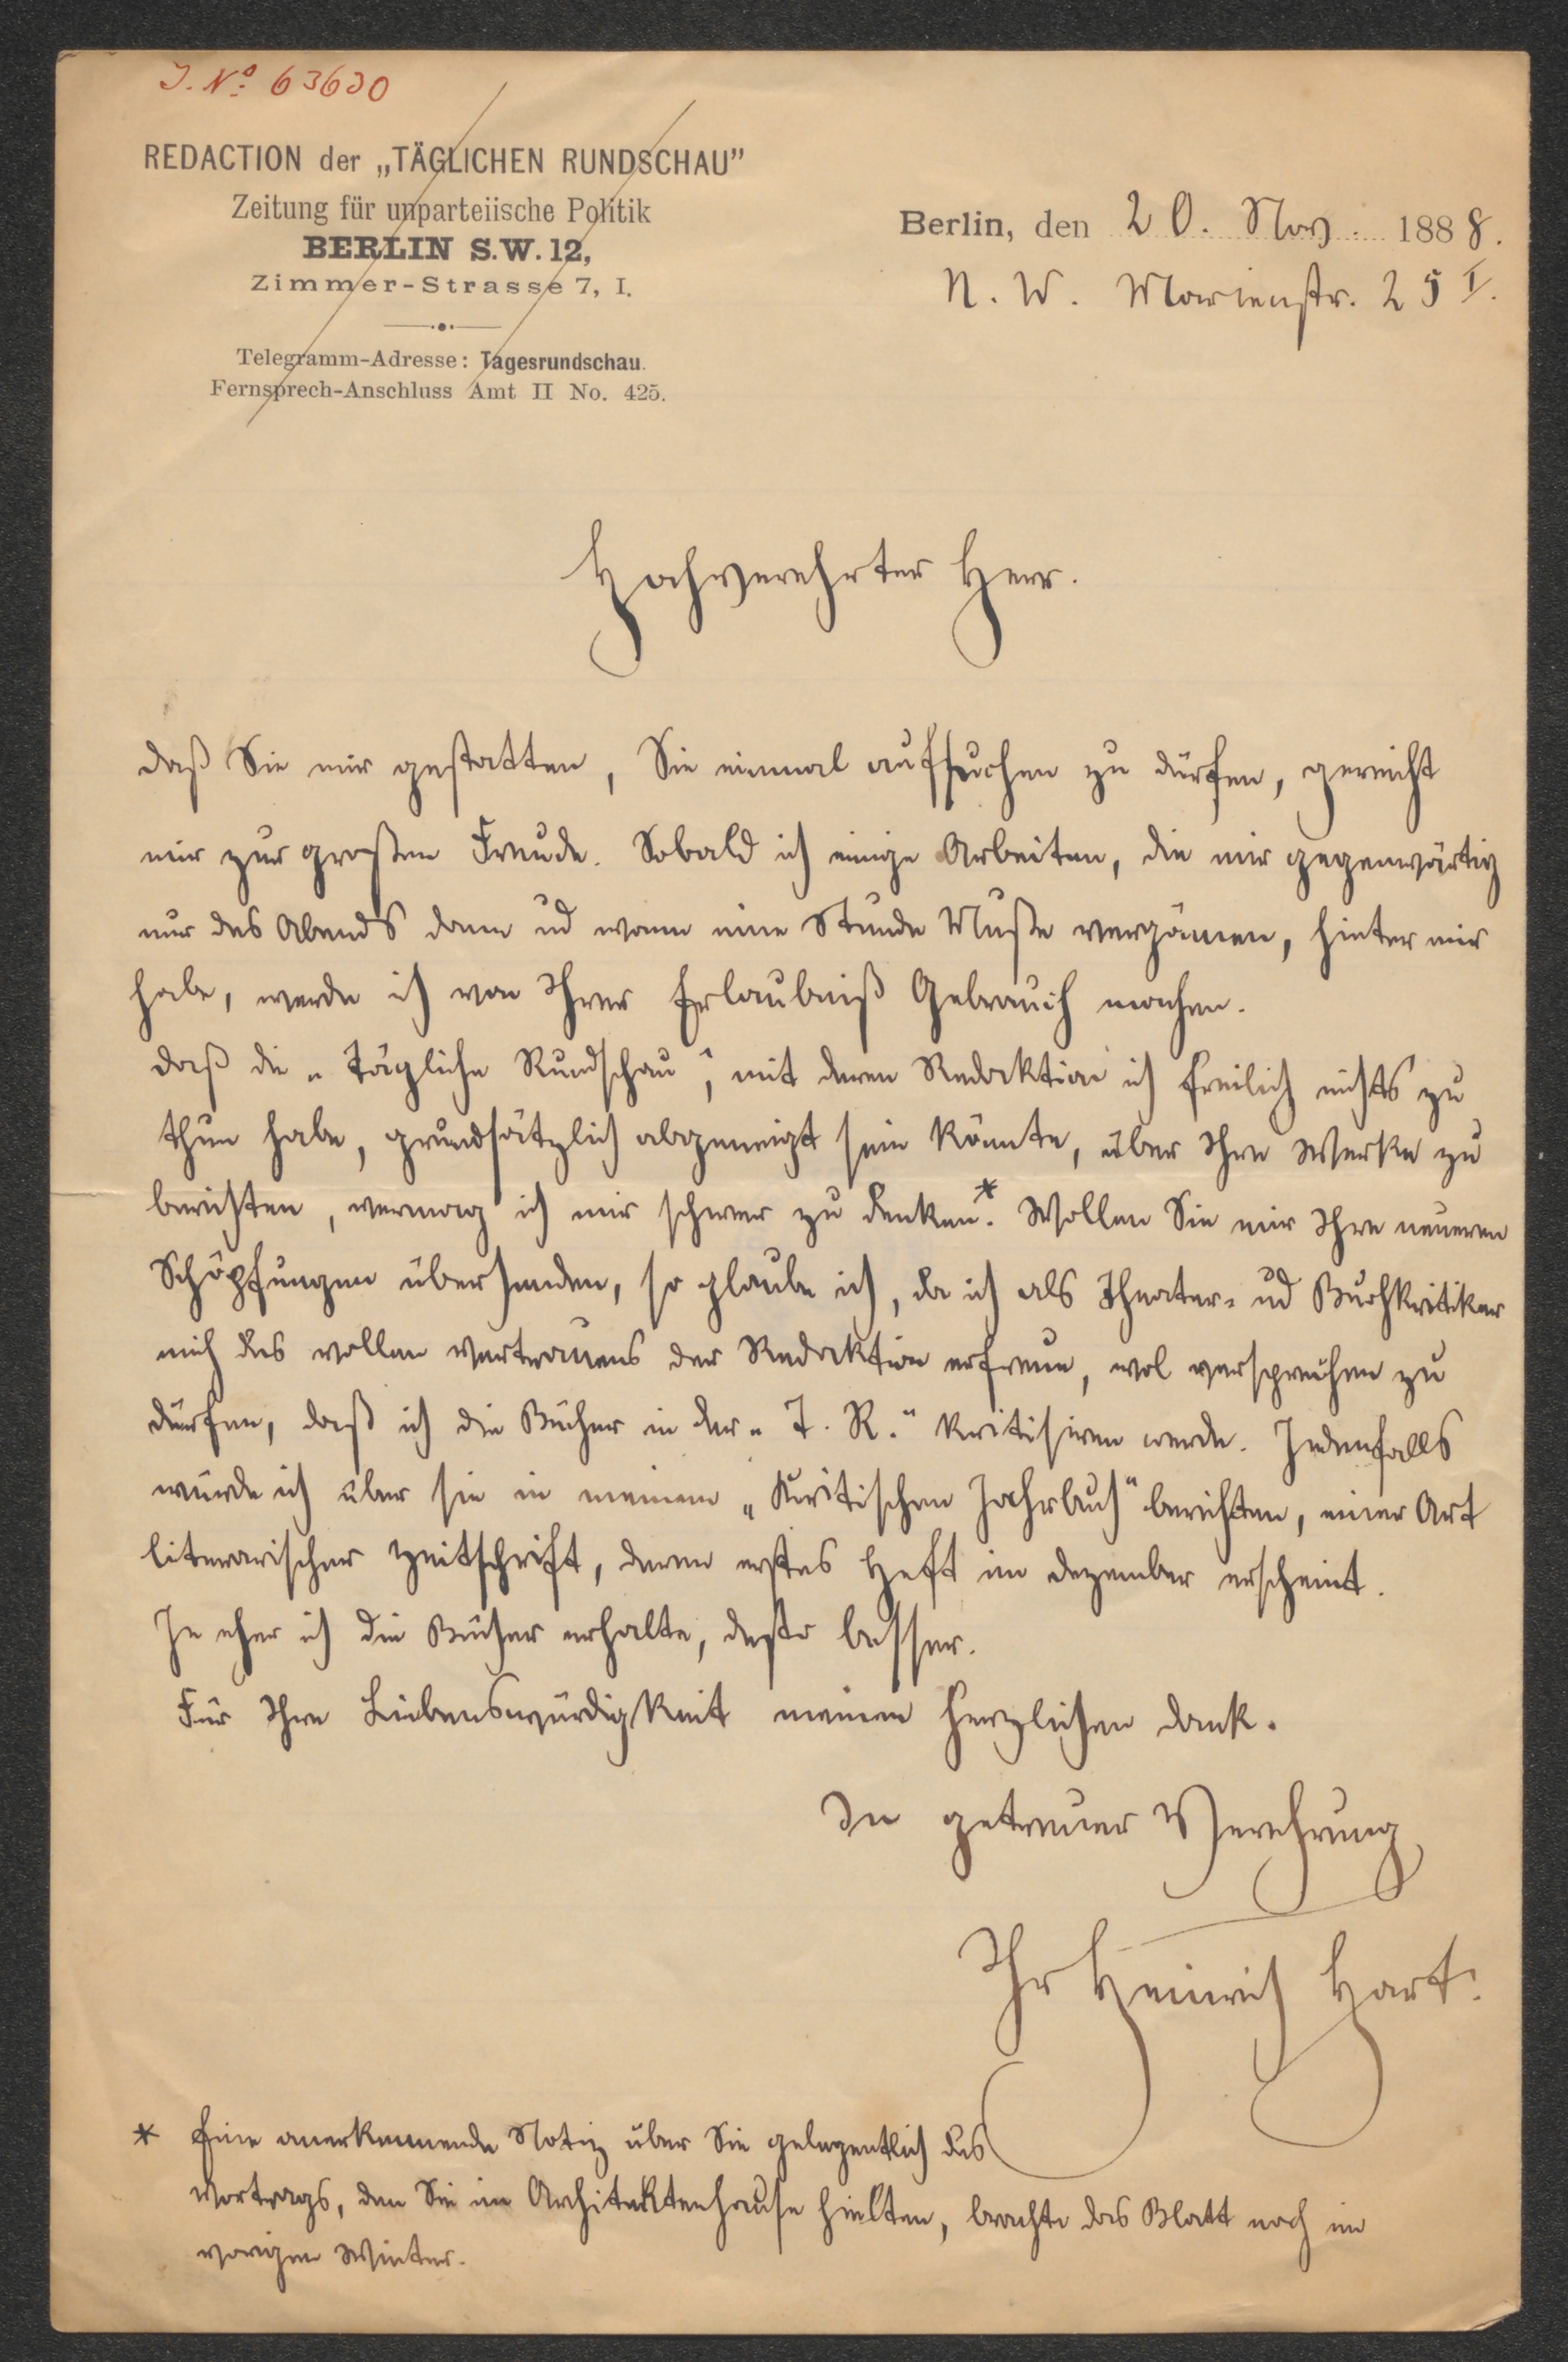 J. No. 63630
REDACTION der „TÄGLICHEN RUNDSCHAU”
Zeitung für unparteiische Politik
BERLIN S.W. 12,
Zimmer-Strasse 7, I.
Telegramm-Adresse: Tagesrundschau.
Fernsprech-Anschluss Amt II No. 425.
Berlin, den 20. Nov. 1888.
N. W. Marienstr. 25 I.
Hochverehrter Herr.
daß Sie mir gestatten, Sie einmal aufsuchen zu dürfen, gereicht
mir zur großen Freude. Sobald ich einige Arbeiten, die mir gegenwärtig
nur des Abends dann ud wann eine Stunde Muße vergönnen, hinter mir
habe, werde ich von Ihrer Erlaubniß Gebrauch machen.
daß die „Tägliche Rundschau“, mit deren Redaktion ich freilich nichts zu
thun habe, grundsätzlich abgeneigt sein könnte, über Ihre Werke zu
berichten, vermag ich mir schwer zu denken.* Wollen Sie mir Ihre neueren
Schöpfungen übersenden, so glaube ich, da ich als Theater- ud Buchkritiker
mich des vollen Vertrauens der Redaktion erfreue, wol versprechen zu
dürfen, daß ich die Bücher in der „T. R.“ kritisiren werde. Jedenfalls
würde ich über sie in meinem „Kritischen Jahrbuch“ berichten, einer Art
literarischer Zeitschrift, deren erstes Heft im Dezember erscheint.
Je eher ich die Bücher erhalte, desto besser.
Für Ihre Liebenswürdigkeit meinen herzlichen Dank.
In getreuer Verehrung
Ihr Heinrich Hart.
* Eine anerkennende Notiz über Sie gelegentlich des
Vortrags, den Sie im Architektenhause hielten, brachte das Blatt noch im
vorigen Winter.